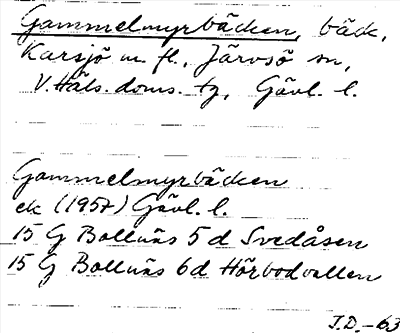 Gammelmyrbäcken, bäck,
Karsjö m. fl., Järvsö sn,
V. Häls. doms. tg, Gävl. l.
Gammelmyrbäcken
ek (1957) Gävl. l.
15 G Bollnäs 5 d Svedåsen
15 G Bollnäs 6 d Hörbovallen
J.D. -63